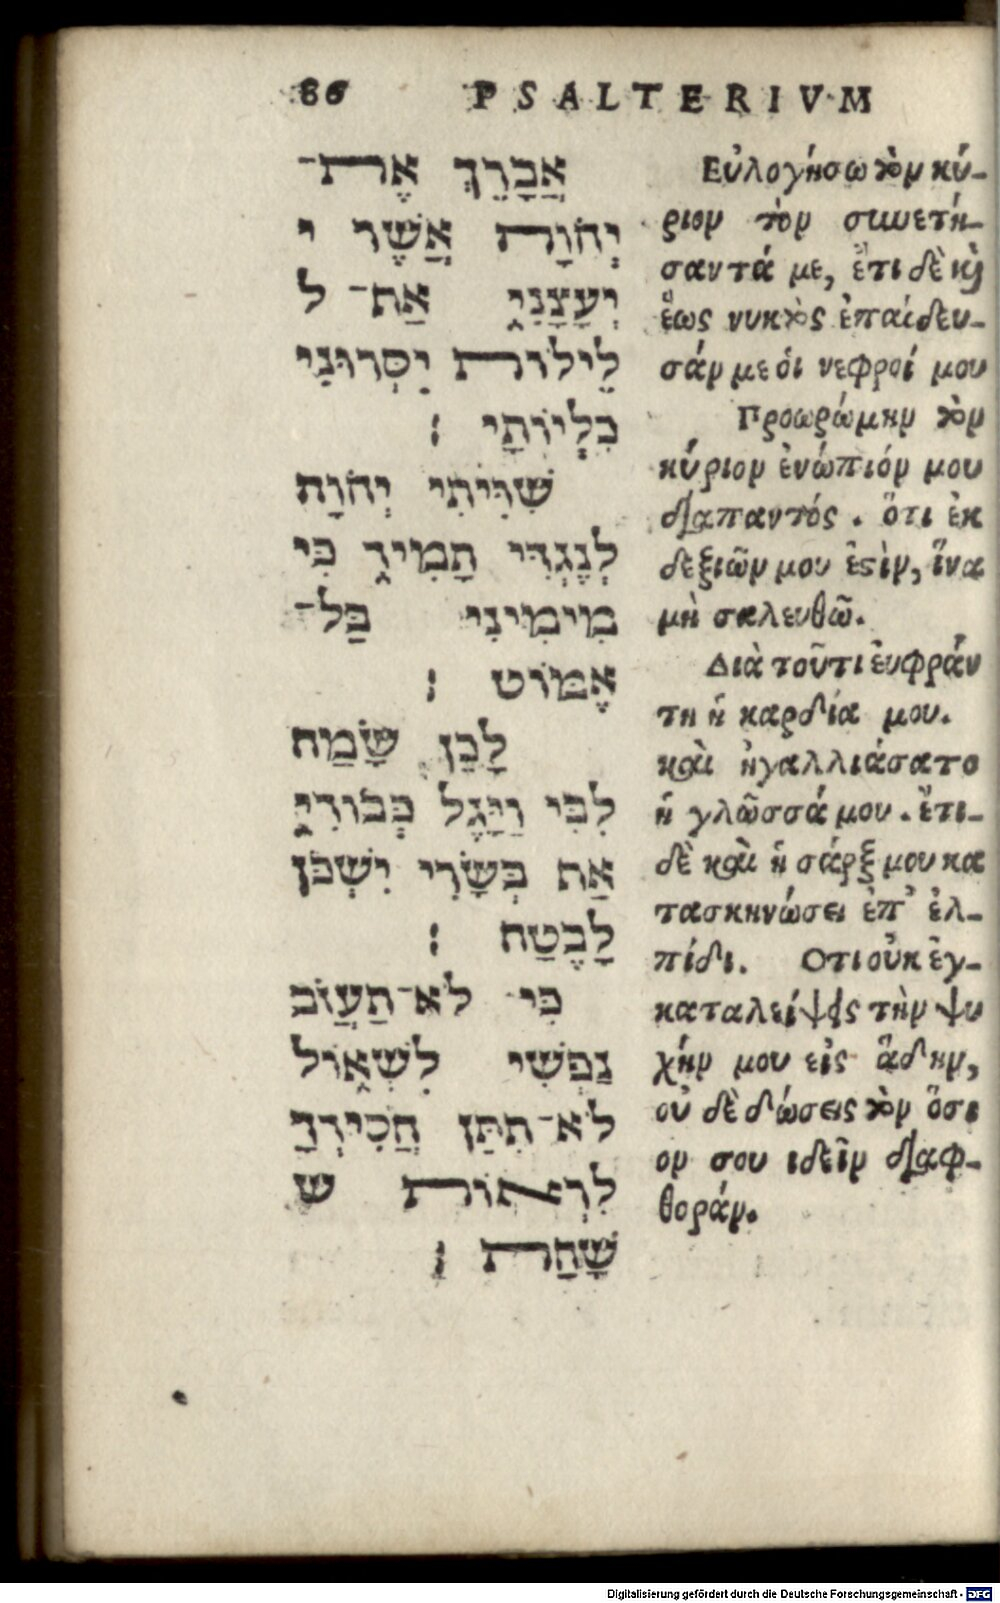 86 PSALTERIVM
אֲבָרֵךְ אֶת־
יְהֹוָה אֲשֶׁר י
יְעָצָנִי אַת־ ל
לֵילוֹת יִסְּרוּנִי
כִלְיוֹתָי :
שִׁוִּיתִי יְהֹוָה
לְנֶגְדִּי תָמִיד כִּי
מִימִינִי בַּל־
אֶמּוֹט :
לָכֵן שָׂמַח
לִבִּי וַיָּגֶל כְּבוֹדִי
אַת בְּשָׂרִי יִשְׁכֹּן
לָבֶטַח :
כִּי לֹא־תַעֲזֹב
נַפְשִׁי לִשְׁאוֹל
לֹא־תִתֵּן חֲסִידְךָ
לִרְאוֹת ש
שָׁחַת :
Εὐλογήσω τὸν κύ-
ριον τὸν συνετή-
σαντά με, ἔτι δὲ καὶ
ἕως νυκτὸς ἐπαίδευ-
σάν με ὁι νεφροί μου
Προωρώμην τὸν
κύριον ἐνώπιόν μου
διαπαντός. ὅτι ἐκ
δεξιῶν μου ἐστὶν, ἵνα
μὴ σαλευθῶ.
Διὰ τοῦτι ἐυφράν
τη ἡ καρδία μου.
καὶ ἠγαλλιάσατο
ἡ γλῶσσά μου. ἔτι-
δὲ καὶ ἡ σάρξ μου κα
τασκηνώσει ἐπ' ἐλ-
πίδι. Οτι οὐκ ἐγ-
καταλείψεις τὴν ψυ
χήν μου εἰς ἅδην,
οὐ δὲ δώσεις τὸν ὅσι
ον σου ιδεῖν διαφ-
θοράν.
Digitalisierung gefördert durch die Deutsche Forschungsgemeinschaft - DFG